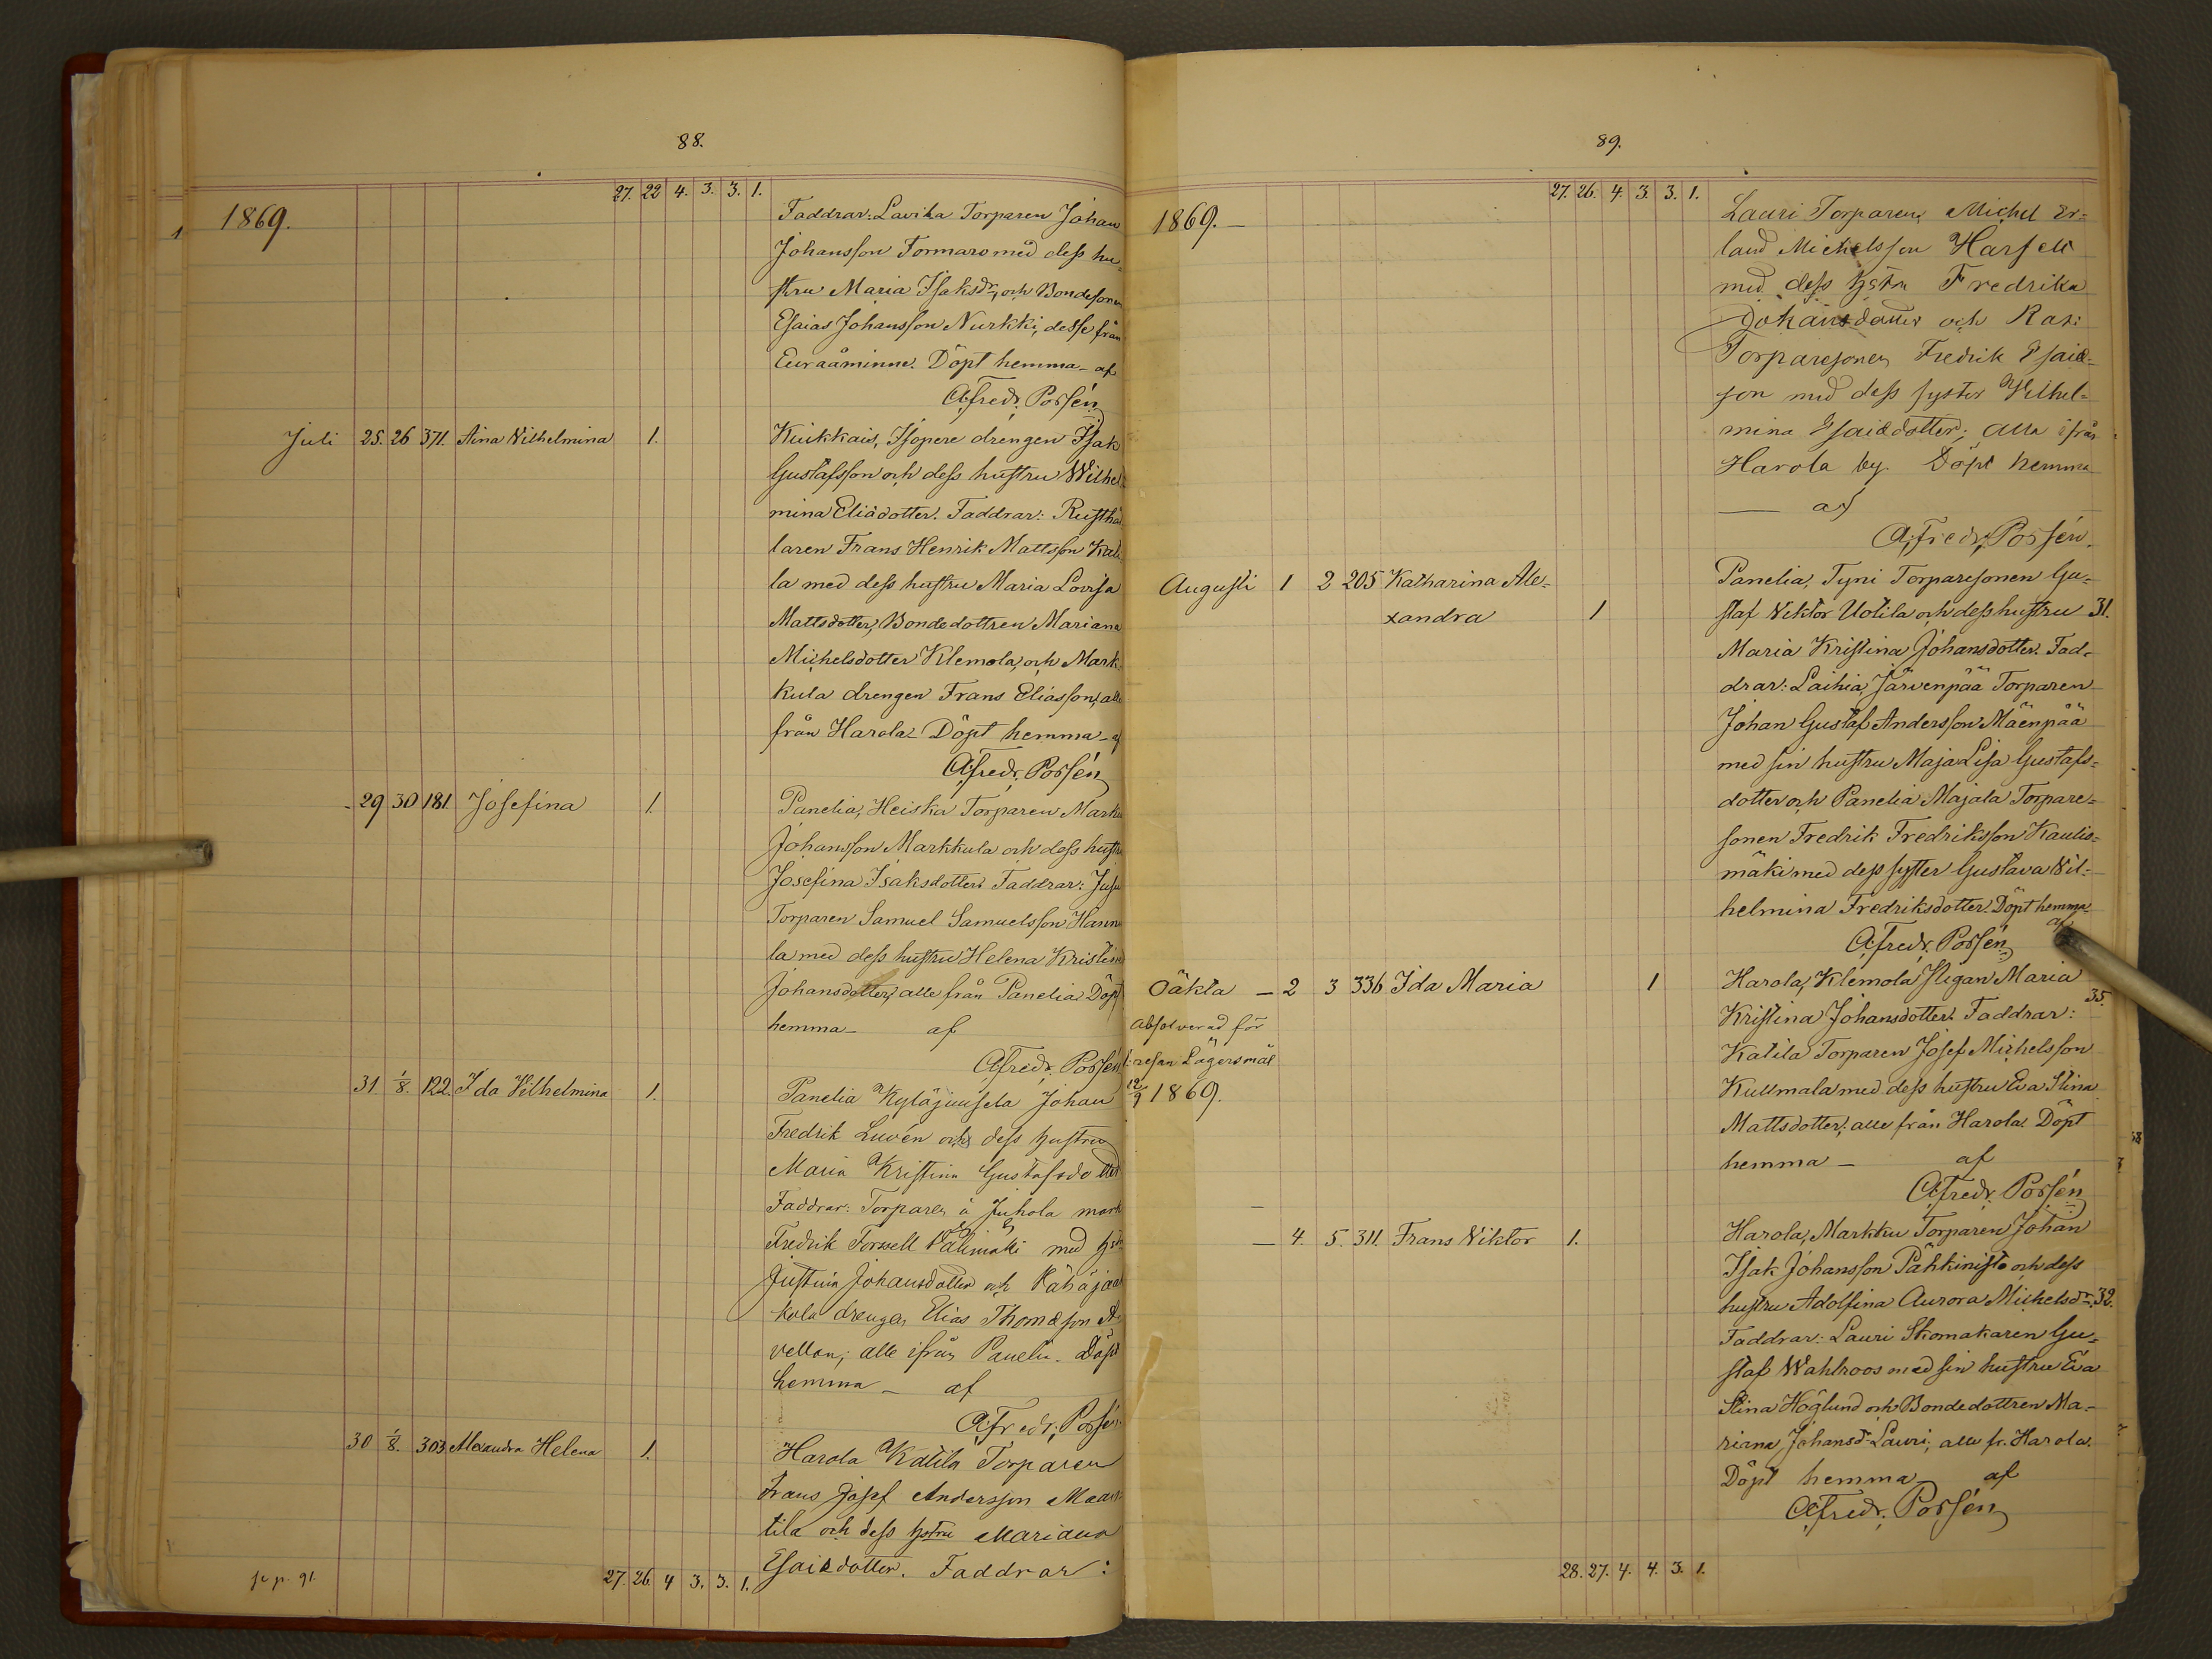 88.
27. 22 4. 3. 3. 1.
1869.
Faddrar: Lavila Torparen Johan
Johansson Tormaro med dess hu-
stru Maria Isaksdr, och Bondesonen
Esaias Johansson Nurkki, desse från
Euraåminne. Döpt hemma - af
A. Fredr. Porsén
Juli 25. 26 371. Aina Vilhelmina 1.
Kiukkais, Isopere drengen Isak
Gustafsson och dess hustru Wilhel
mina Eliædotter. Faddrar: Rusthål
laren Frans Henrik Mattsson Kati
la med dess hustru Maria Lovisa
Mattsdotter, Bondedottren Mariana
Michelsdotter Klemola, och Mark-
kula drengen Frans Eliasson, alle
från Harola - Döpt hemma - af
A. Fredr. Porsén
- 29 30 181 Josefina 1.
Panelia, Heiska Torparen Markus
Johansson Markkula och dess hustru
Josefina Isaksdotter. Faddrar:
Torparen Samuel Samuelsson Hannu
la med dess hustru Helena Kristina
Johansdotter, alle från Panelia. Döpt
hemma - af
A. Fredr. Porsén
31. 1/8. 122. Ida Vilhelmina 1.
Panelia Kyläjuusela Johan
Fredrik Luvén och dess hustru
Maria Kristina Gustafsdotter
Faddrar: Torparen å Juhola mark
Fredrik Forssell Välimäki med hstr
Justina Johansdotter och Vähäjaa
kola drengen Elias Thomæson
vellan; alle ifrån Panelia. Döpt
hemma - af
A. Fredr. Porsén
30 1/8. 303 Alexandra Helena 1.
Harola Katila Torparen
Frans Josef Andersson Maan-
tila och dess hstru Mariana
Esaiædotter. Faddrar:
27. 26. 4 3. 3. 1.
se p. 91.
89.
27. 26. 4. 3. 3. 1.
1869. -
Lauri Torparen, Michel Er-
land Michelsson Harsell
med dess hstru Fredrika
Johansdotter och
Torparesonen Fredrik Esaiæ-
son med dess syster Vilhel-
mina Esaiædotter; alla ifrån
Harola by. Döpt hemma
af
A. Fredr. Porsén.
Augusti 1 2 205 Katharina Ale-
xandra 1
Panelia, Tyni Torparesonen Gu-
staf Viktor Uotila och dess hustru 31.
Maria Kristina Johansdotter. Fad-
drar: Laihia, Järvenpää Torparen
Johan Gustaf Andersson Mäenpää
med sin hustru Maja Lisa Gustafs-
dotter och Panelia Majala Torpare-
sonen Fredrik Fredriksson Kaulis-
mäki med dess syster Gustava Vil-
helmina Fredriksdotter. Döpt hemma
af
A. Fredr. Porsén
Oäkta - 2 3 336 Ida Maria 1
Absolverad för
1. resan Lägersmål
12/9 1869.
Harola, Klemola Pigan Maria
Kristina Johansdotter. Faddrar: 35.
Katila Torparen Josef Michelsson
Kullmala med dess hustru Eva Stina
Mattsdotter, alle från Harola. Döpt
hemma - af
A. Fredr. Porsén
- 4. 5. 311. Frans Viktor 1.
Harola, Markku Torparen Johan
Isak Johansson Pähkinistö och dess
hustru Adolfina Aurora Michelsdr. 32.
Faddrar: Lauri Skomakaren Gu-
staf Wahlroos med sin hustru Eva
Stina Höglund och Bondedottren Ma-
riana Johansdr Lauri, alle fr. Harola.
Döpt hemma af
A. Fredr. Porsén
28. 27. 4. 4. 3. 1.